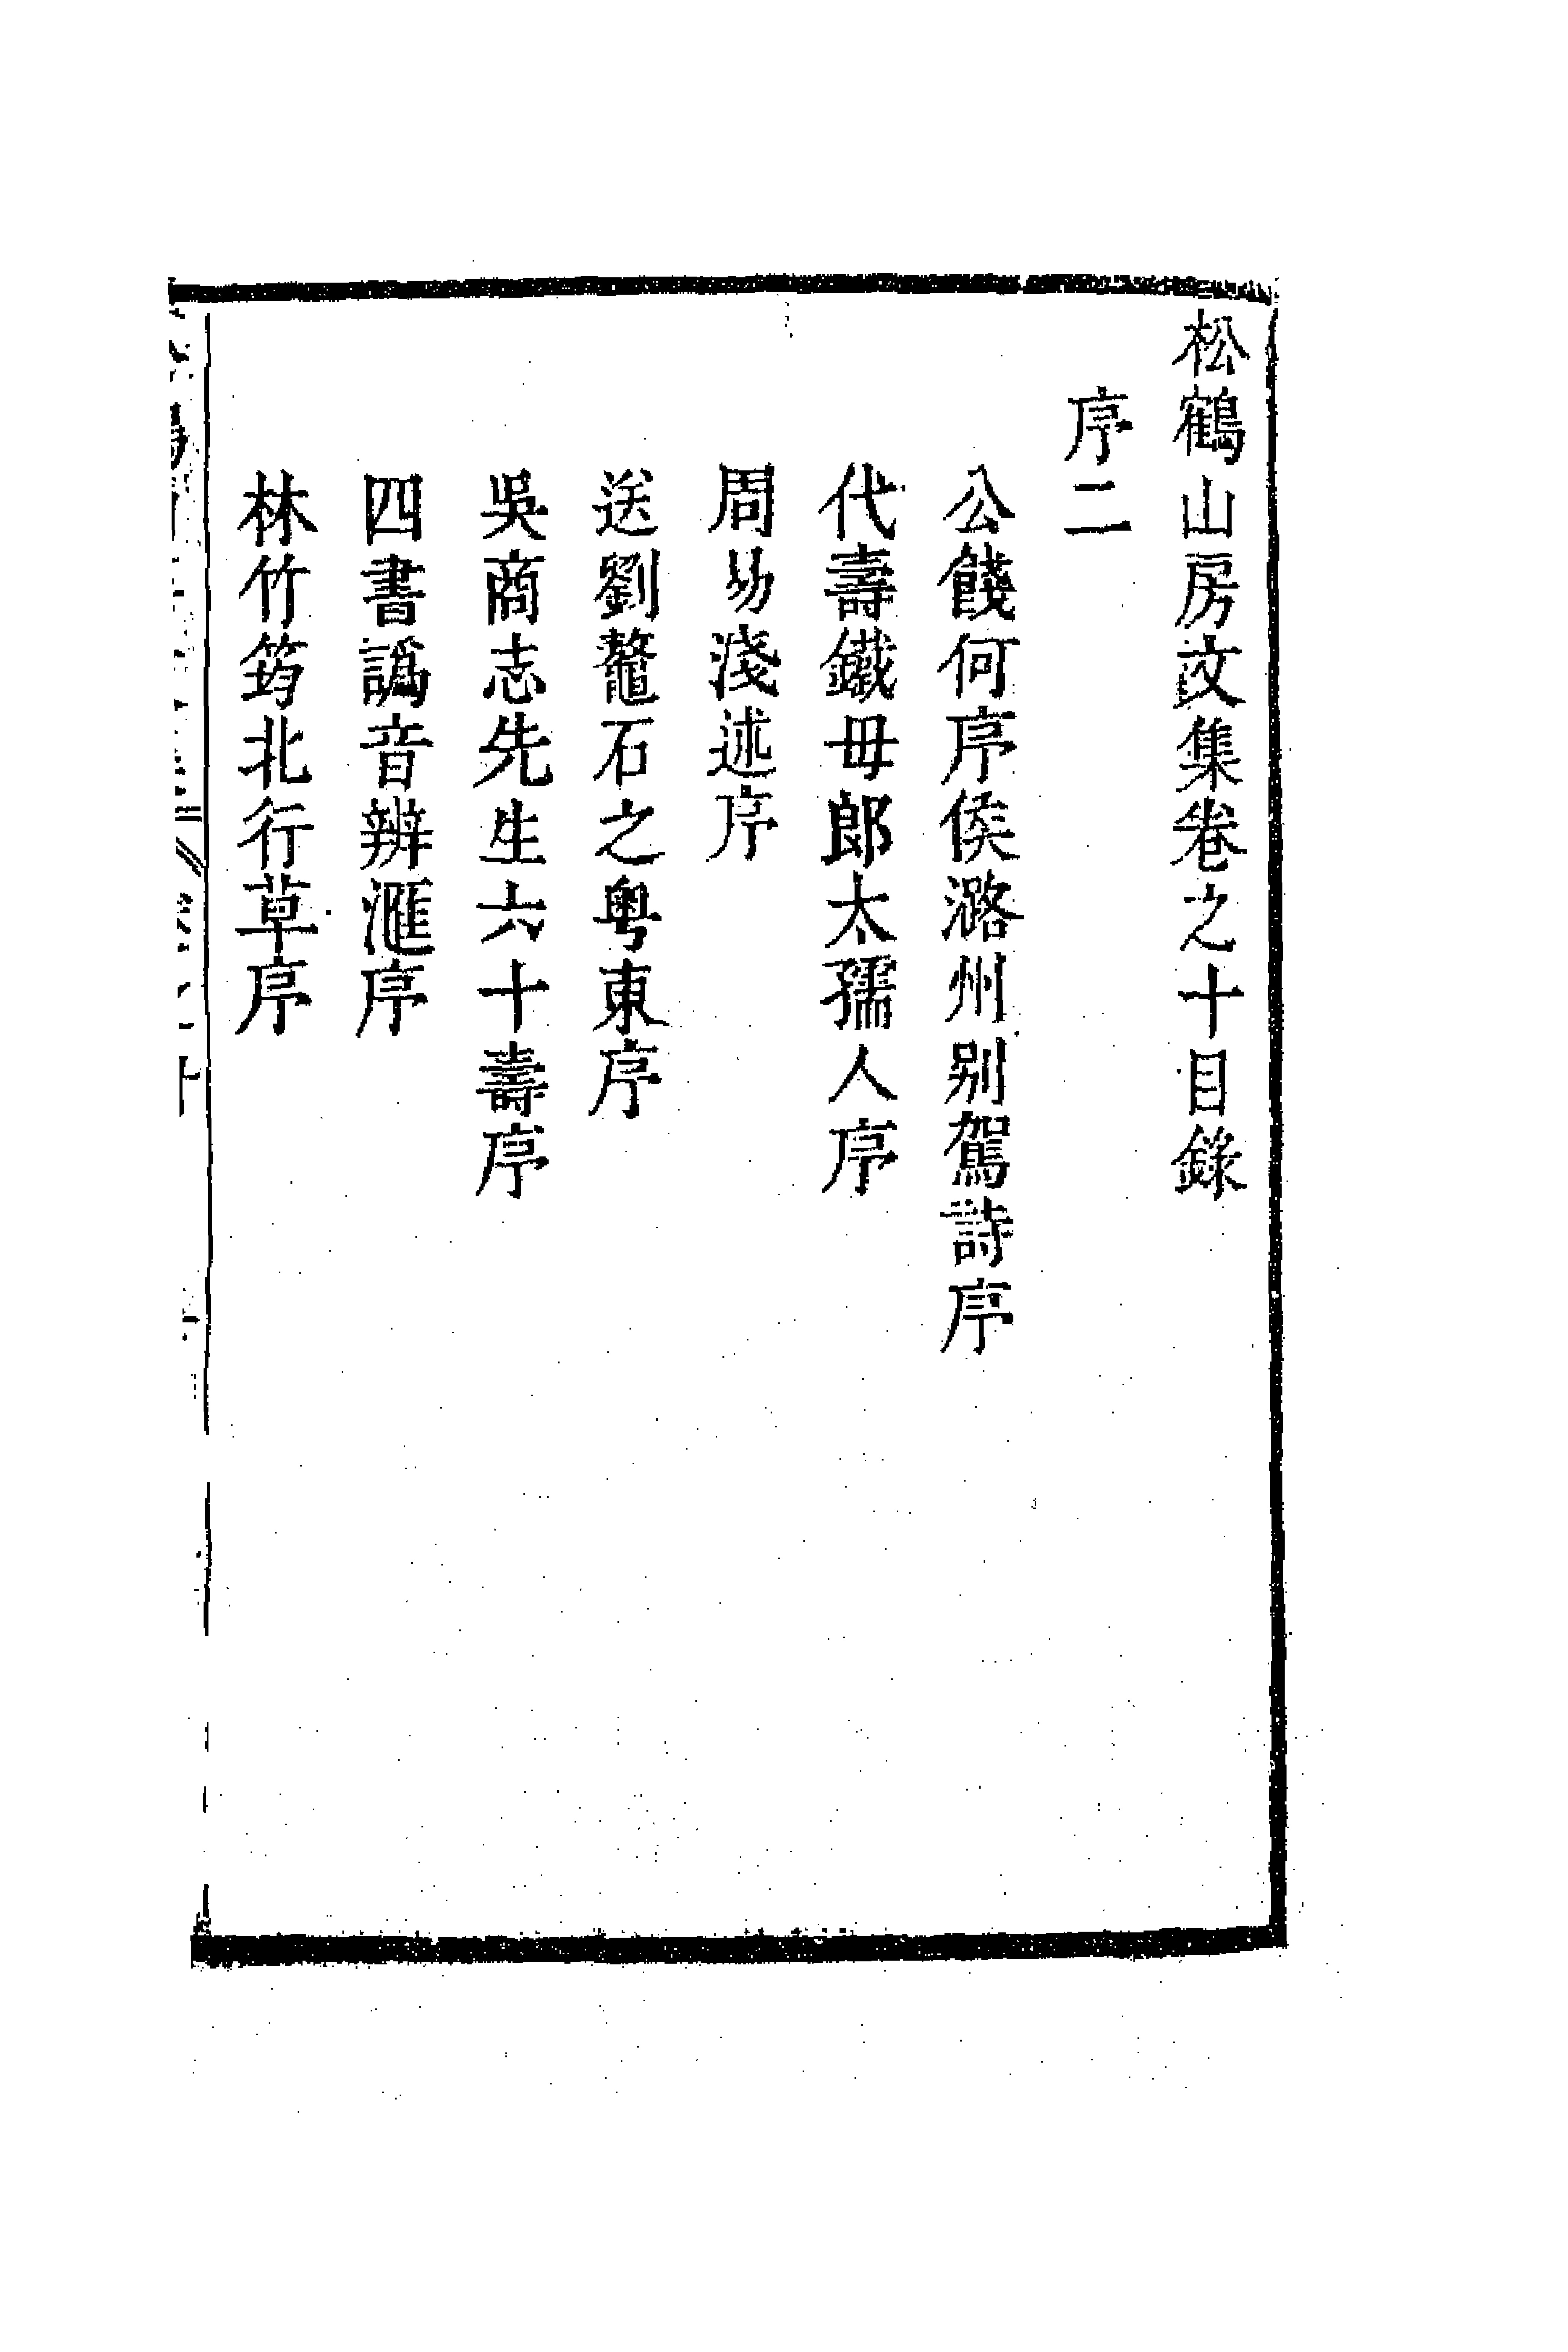 松鶴山房文集卷之十目錄
序二
公餞何序侯潞州别駕詩序
代壽鐵母郎太孺人序
周易淺述序
送劉鼇石之粤東序
吳商志先生六十壽序
四書譌音辨滙序
林竹筠北行草序